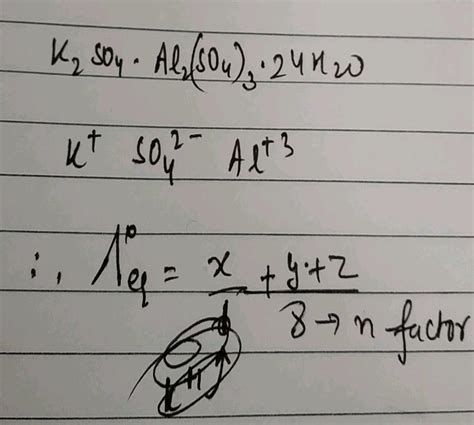 K₂SO₄ · Al₂(SO₄)₃ · 24H₂O
K⁺ SO₄²⁻ Al⁺³
∴ Λ°eq = x + y + z
8 → n factor